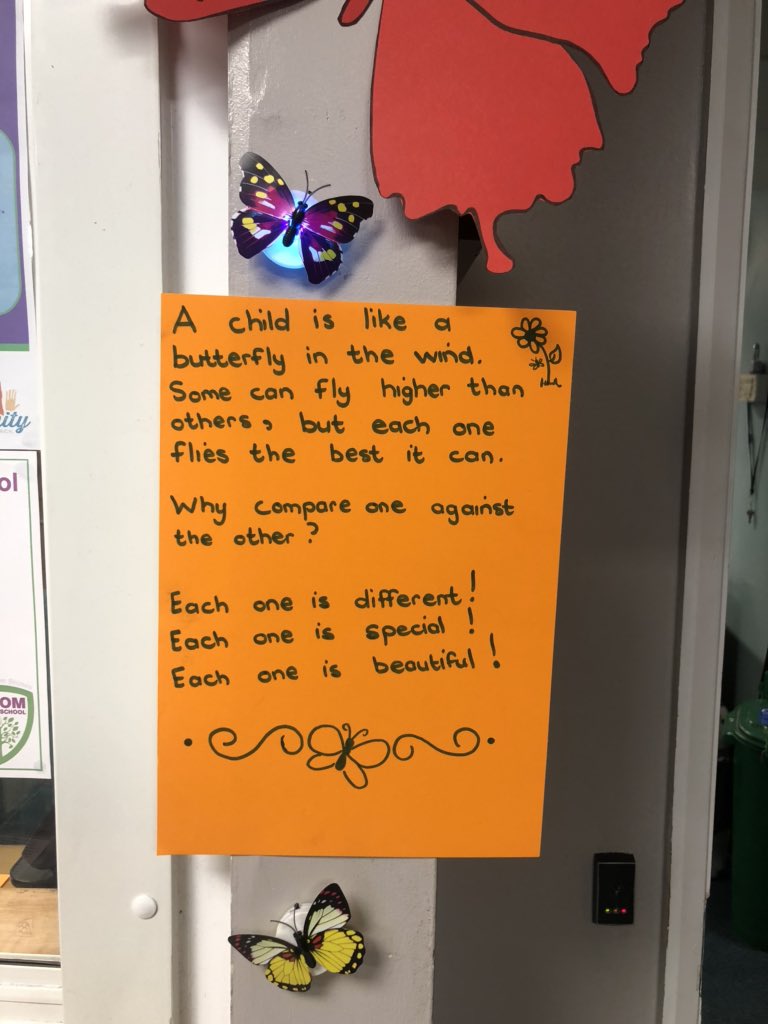 A child is like a
butterfly in the wind.
Some can fly higher than
others, but each one
flies the best it can.
Why compare one against
the other?
Each one is different!
Each one is special!
Each one is beautiful!
ity
ol
OM
SCHOOL